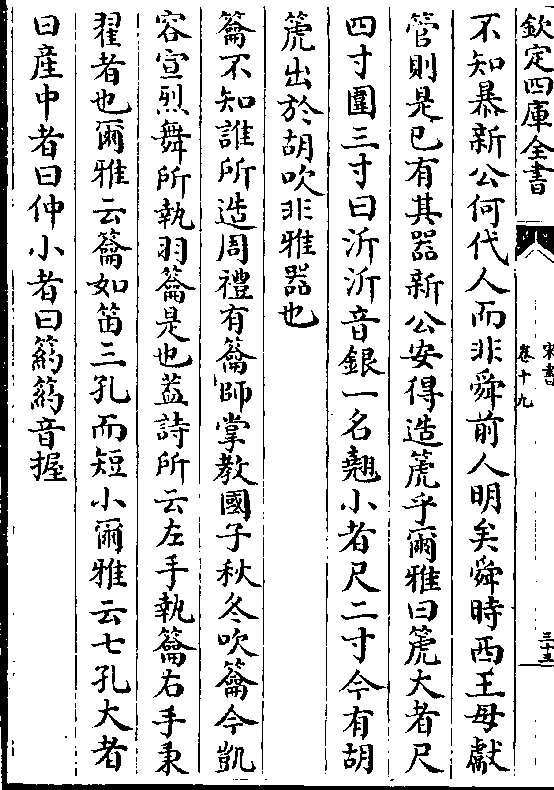 欽定四庫全書
宋書
卷十九
三十五
不知暴新公何代人而非舜前人明矣舜時西王母獻
管則是已有其器新公安得造箎乎爾雅曰箎大者尺
四寸圍三寸曰沂沂音銀一名翹小者尺二寸今有胡
箎出於胡吹非雅器也
籥不知誰所造周禮有籥師掌教國子秋冬吹籥今凱
容宣烈舞所執羽籥是也葢詩所云左手執籥右手秉
翟者也爾雅云籥如笛三孔而短小爾雅云七孔大者
曰産中者曰仲小者曰箹箹音握